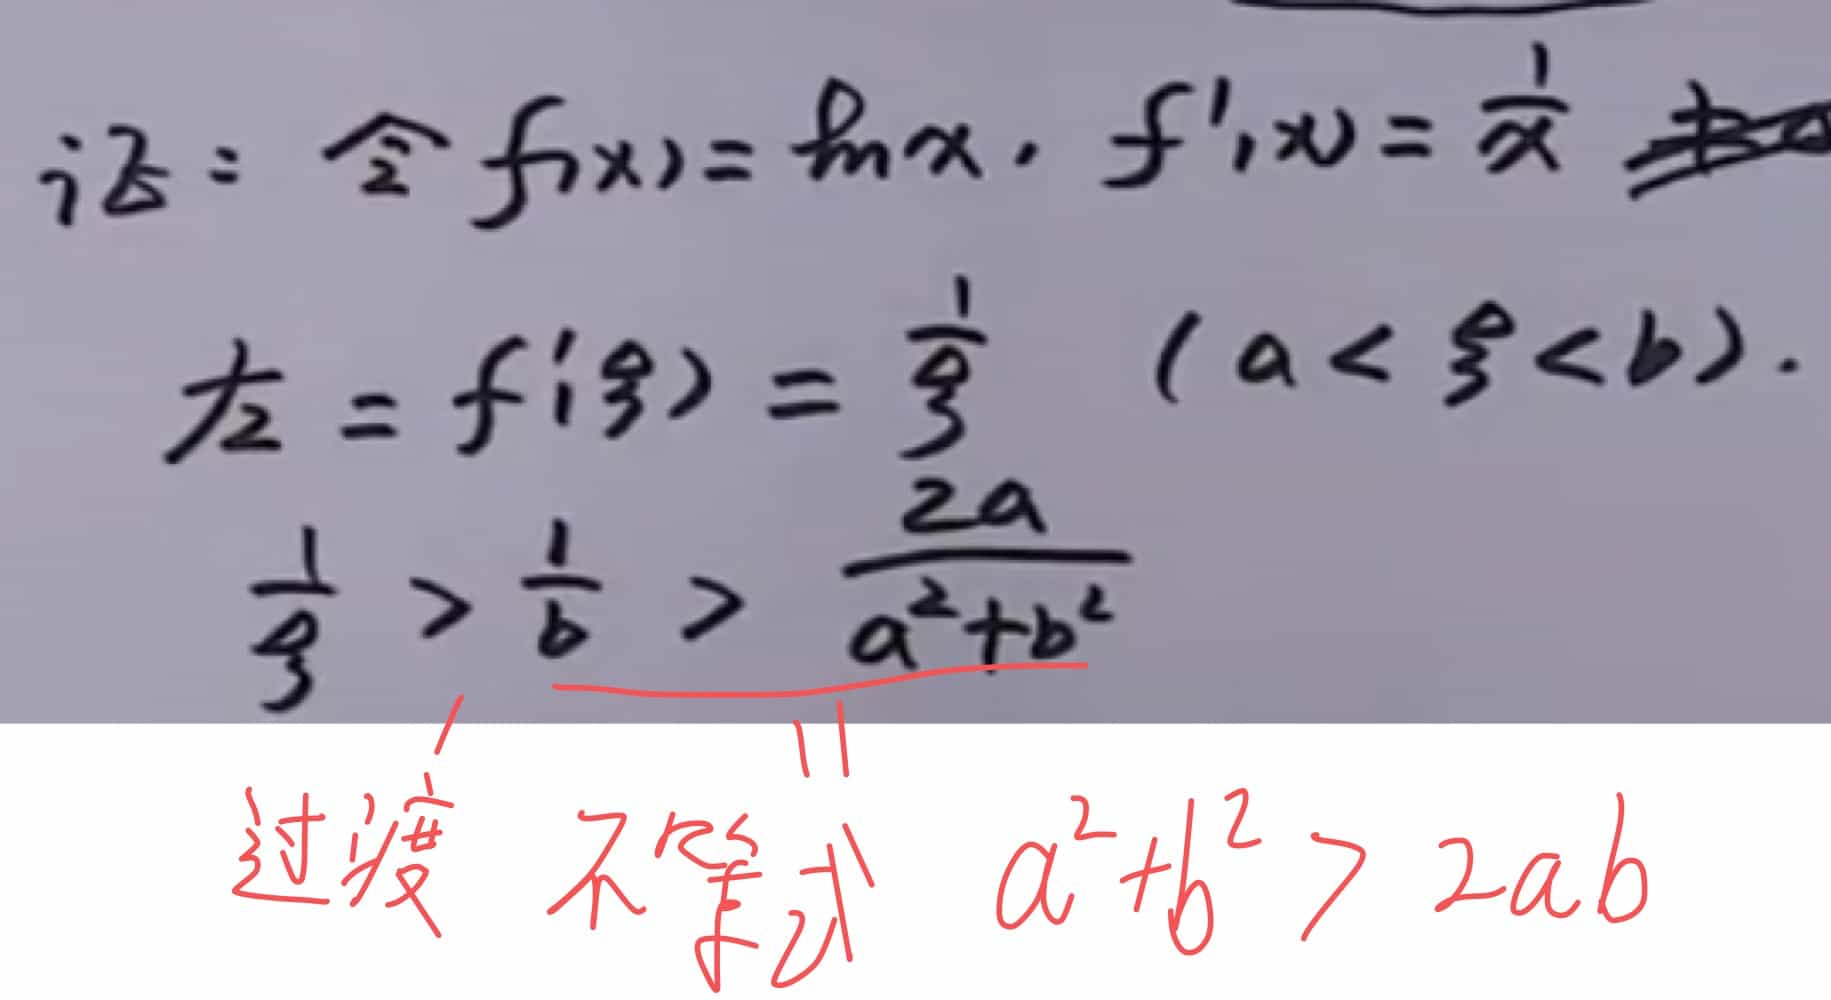 证：令 f(x) = ln x. f'(x) = 1/x
左 = f'(ξ) = 1/ξ (a < ξ < b).
1/ξ > 1/b > 2a/(a²+b²)
过渡 不等式 a²+b² > 2ab